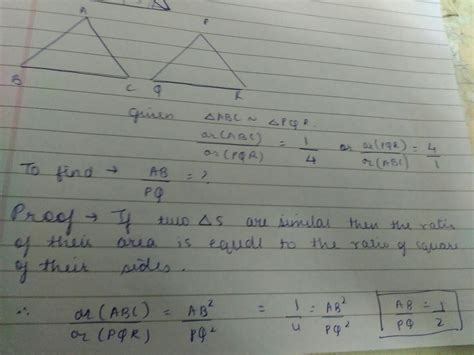 A
P
B
C
Q
R
Given △ABC ~ △PQR
ar(ABC) / ar(PQR) = 1/4 or ar(PQR) / ar(ABC) = 4/1
To find → AB/PQ = ?
Proof → If two △s are similar then the ratio
of their area is equal to the ratio of square
of their sides.
∴ ar(ABC) / ar(PQR) = AB² / PQ² = 1/4 = AB² / PQ² AB/PQ = 1/2